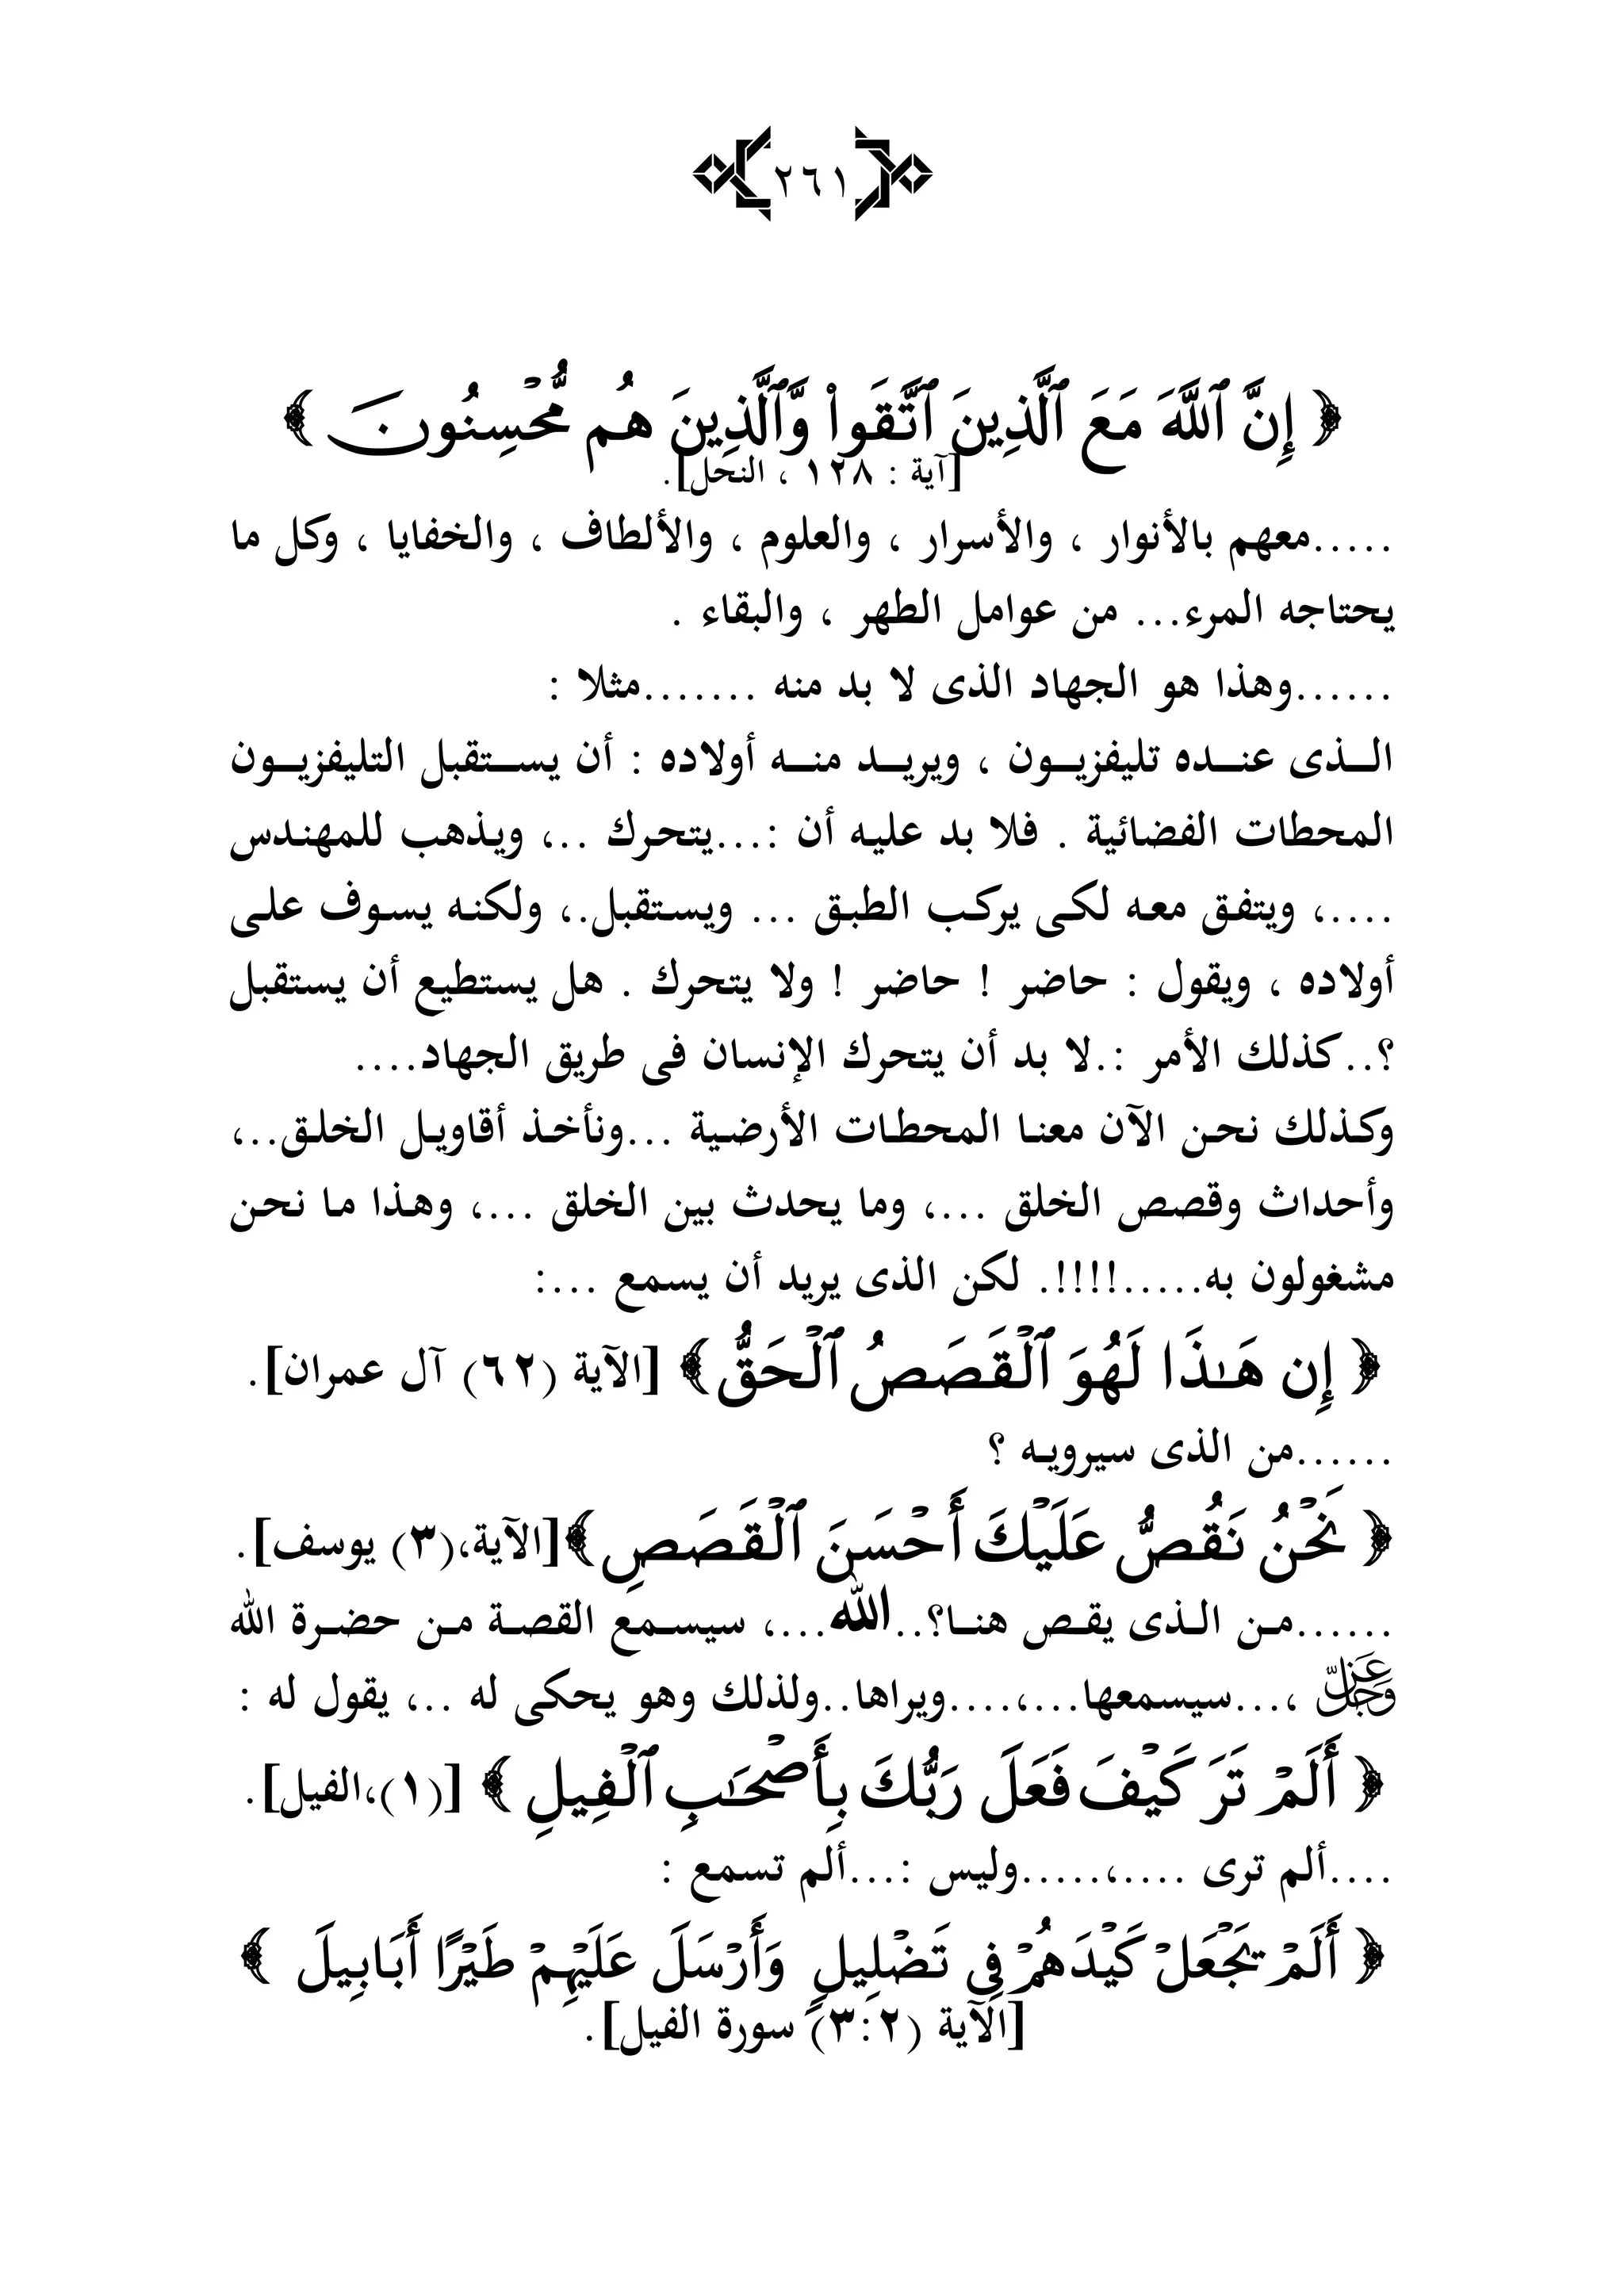 ٢٦١
﴿ إِنَّ ٱللَّهَ مَعَ ٱلَّذِينَ ٱتَّقَوا۟ وَّٱلَّذِينَ هُم مُّحْسِنُونَ ﴾
[آية : ١٢٨ ، النحل].
.....معهم بالأنوار ، والأسرار ، والعلوم ، والألطاف ، والخفايا ، وكل ما
يحتاجه المرء... من عوامل الطهر ، والبقاء .
......وهذا هو الجهاد الذى لا بد منه .......مثلا :
الذى عنده تليفزيون ، ويريد منه أولاده : أن يستقبل التليفزيون
المحطات الفضائية . فلا بد عليه أن :...يتحرك ..، ويذهب للمهندس
....، ويتفق معه لكى يركب الطبق ... ويستقبل.، ولكنه يسوف على
أولاده ، ويقول : حاضر ! حاضر ! ولا يتحرك . هل يستطيع أن يستقبل
؟..كذلك الأمر :.لا بد أن يتحرك الإنسان فى طريق الجهاد....
وكذلك نحن الآن معنا المحطات الأرضية ...ونأخذ أقاويل الخلق..،
وأحداث وقصص الخلق ...، وما يحدث بين الخلق ...، وهذا ما نحن
مشغولون به.....!!!!. لكن الذى يريد أن يسمع ...:
﴿ إِن هَـٰذَا لَهُوَ ٱلْقَصَصُ ٱلْحَقُّ ﴾ [الآية (٦٢) آل عمران].
......من الذى سيرويه ؟
﴿ نَحْنُ نَقُصُّ عَلَيْكَ أَحْسَنَ ٱلْقَصَصِ ﴾[الآية،(٣) يوسف].
......من الذى يقص هنا؟..الله...، سيسمع القصة من حضرة الله
عَزَّ وَجَلَّ ،...سيسمعها...،....ويراها..ولذلك وهو يحكى له ..، يقول له :
﴿ أَلَمْ تَرَ كَيْفَ فَعَلَ رَبُّكَ بِأَصْحَـٰبِ ٱلْفِيلِ ﴾ [(١)،الفيل].
....ألم ترى ....،.....وليس :...ألم تسمع :
﴿ أَلَمْ تَجْعَلْ كَيْدَهُمْ فِى تَضْلِيلٍ وَأَرْسَلَ عَلَيْهِمْ طَيْرًا أَبَابِيلَ ﴾
[الآية (٣:٢) سورة الفيل].